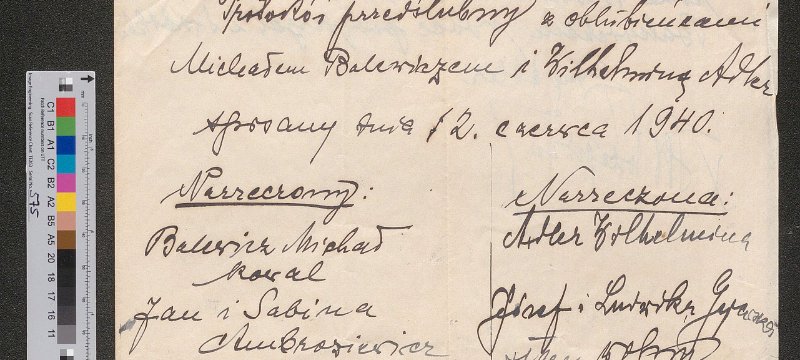 Protokół przedślubny z oblubieńcami
Michałem Balewiczem i Wilhelminą Adler
spisany dnia 12. czerwca 1940.
Narzeczony:
Narzeczona:
Balewicz Michał
kowal
Jan i Sabina
Ambroziewicz
Adler Wilhelmina
Józef i Ludwika
C1 B1 A1 C2 B2 A2 B5 A5 20 18 17 16 11
575